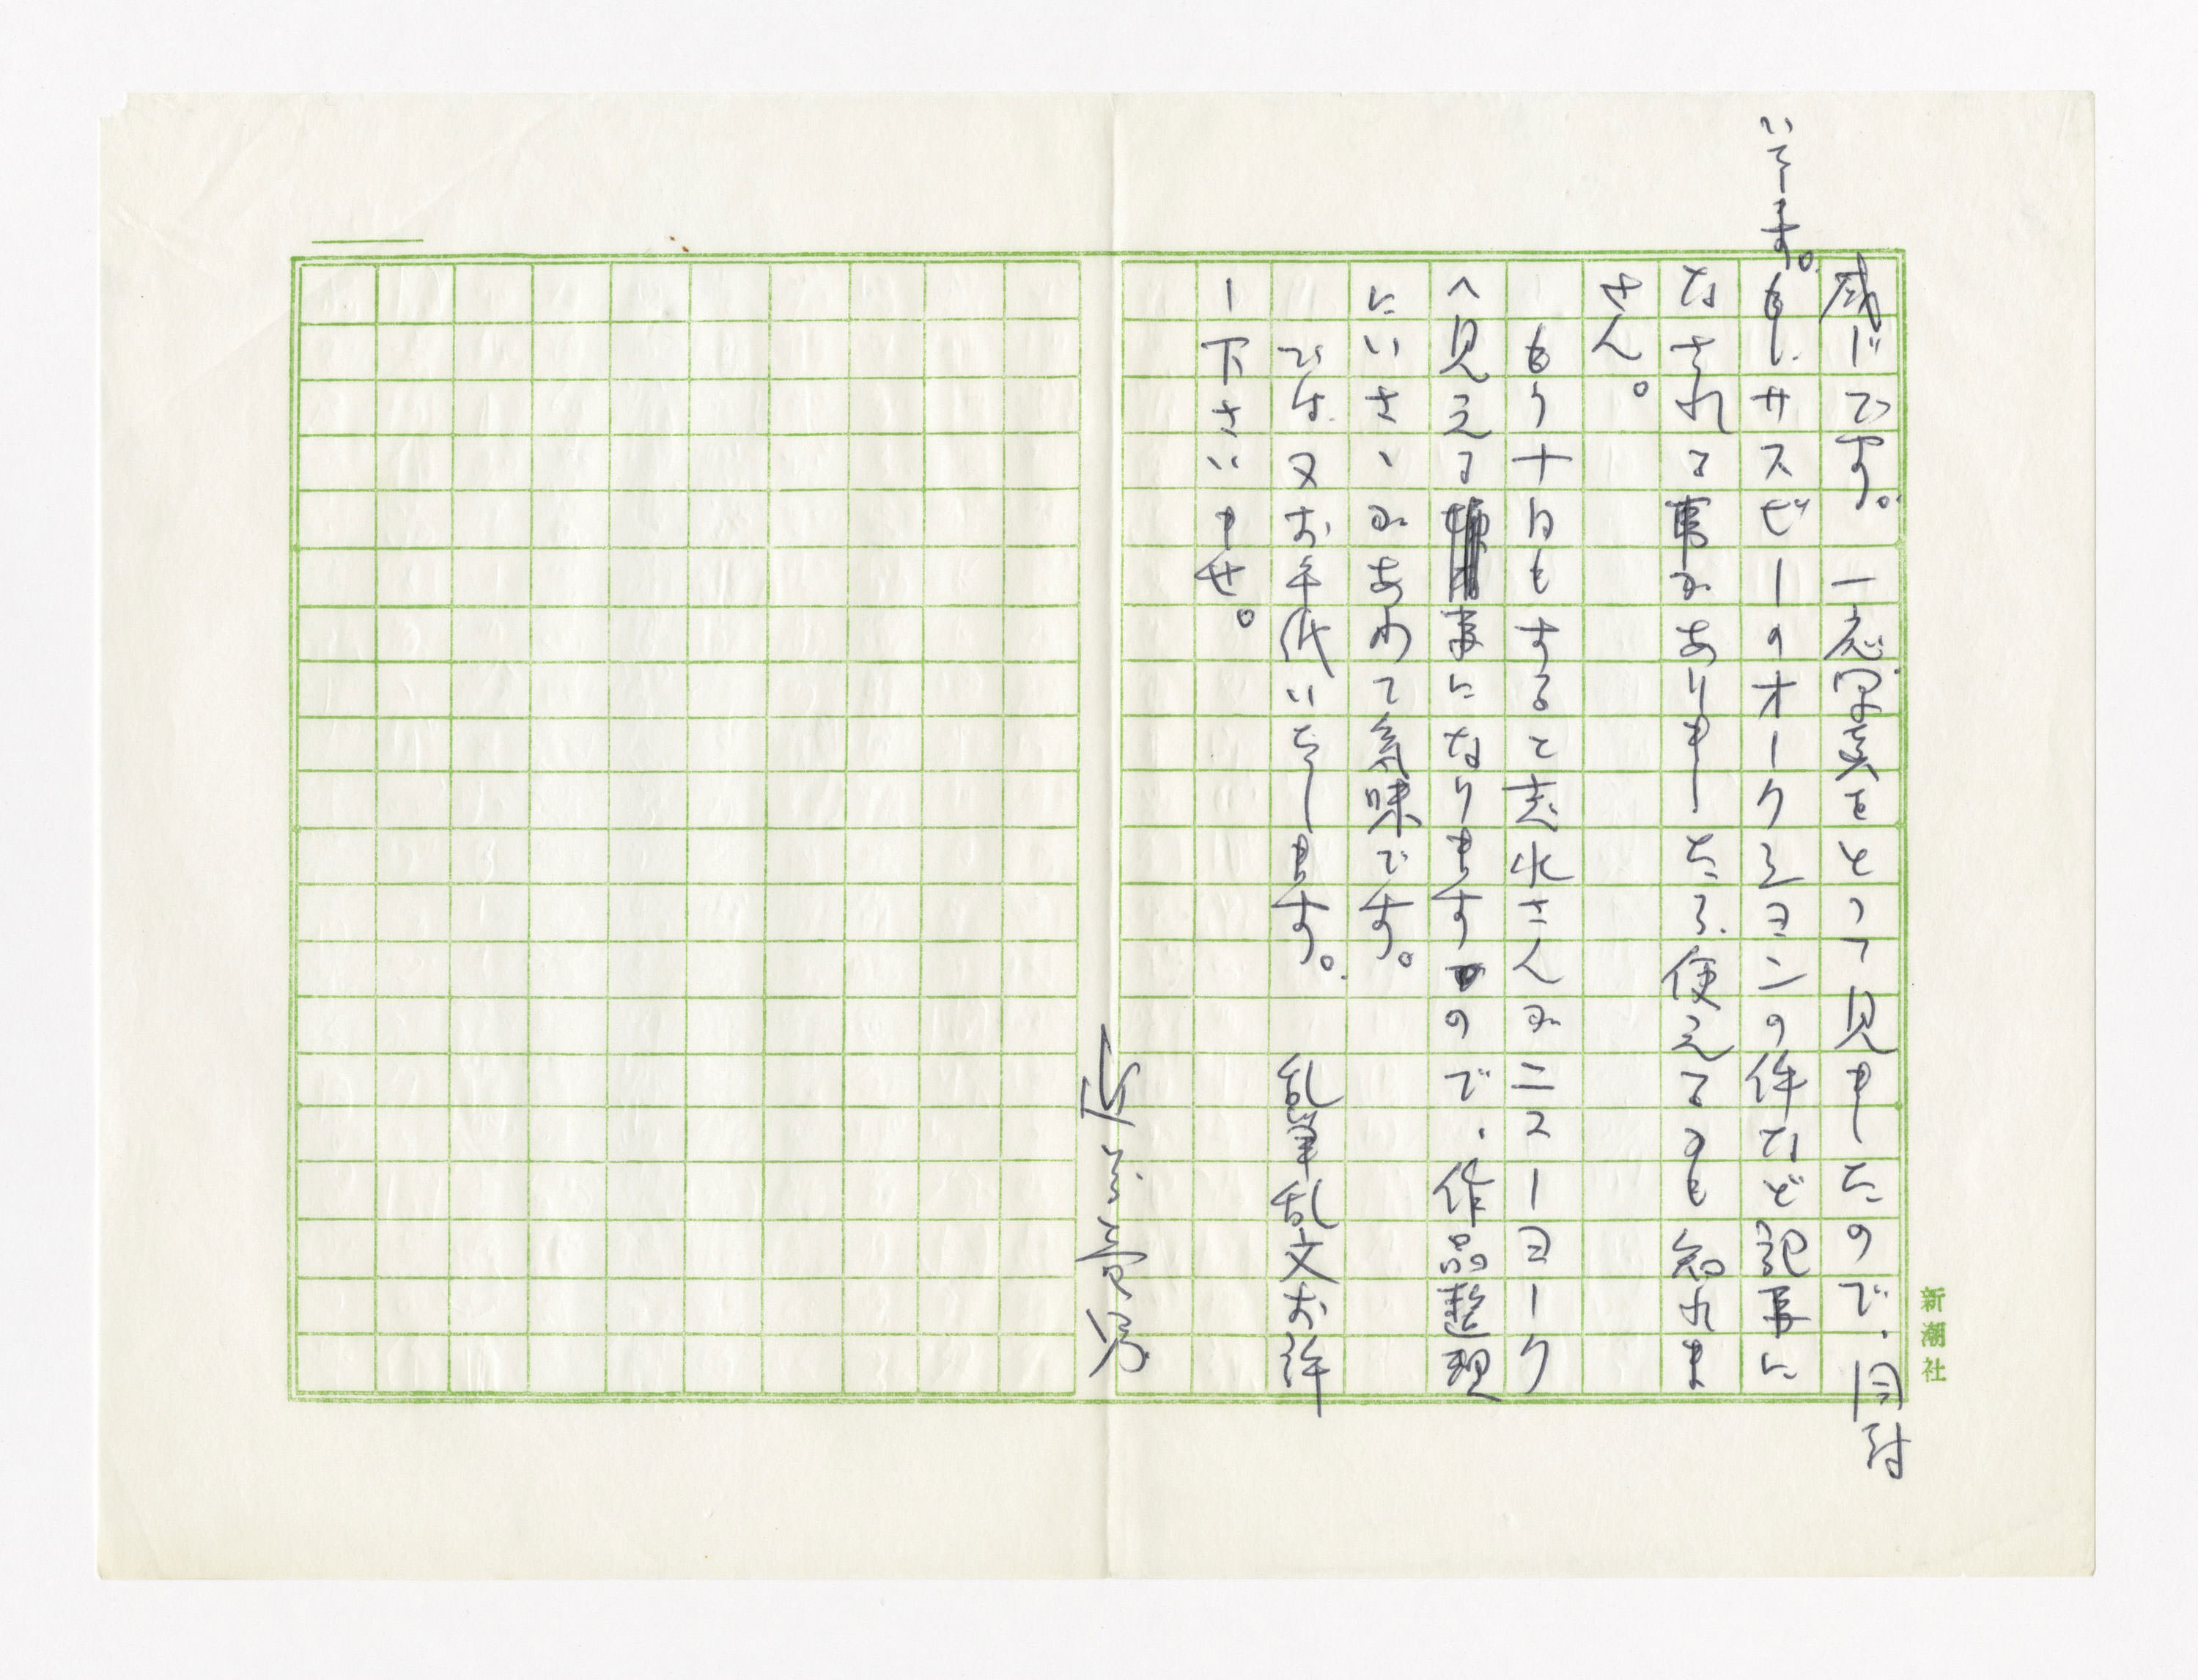 感じです。一応写真をとって見ましたので、同封
いたします。もし、サスビーのオークションの件など記事に
なされる事がありましたら、使えるかも知れま
せん。
もう十日もすると志水さんがニューヨーク
へ見える事になりますので、作品整理
にいさゝかあわて気味です。
では又お手紙いたします。乱筆乱文お許
し下さいませ。
新潮社